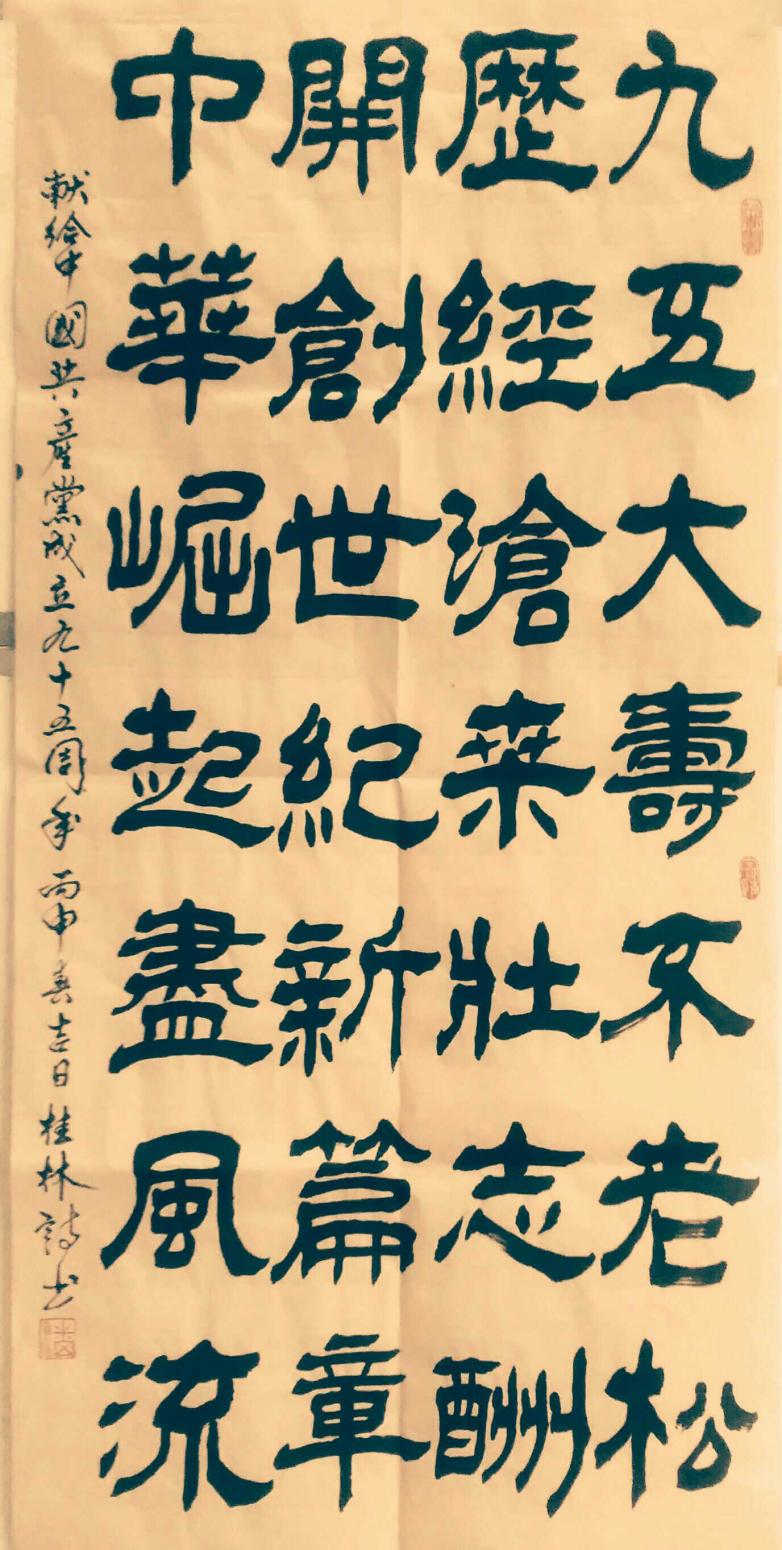 九五大壽不老松
歷經滄桒壯志酬
開創世紀新篇章
中華崛起盡風流
獻給中國共產黨成立九十五周年 丙申春吉日 桂林詩书